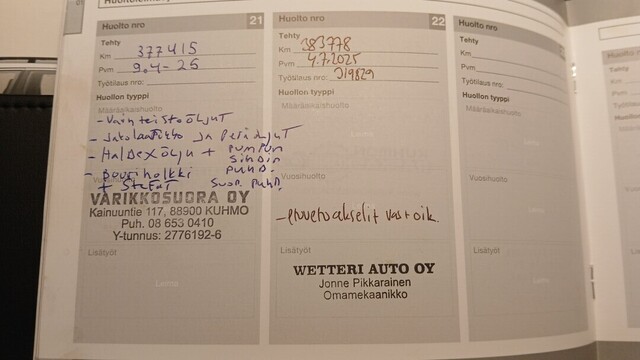 Huolto nro 21
Tehty
Km 377415
Pvm 9.4-25
Työtilaus nro:
Huollon tyyppi
Määräaikaishuolto
- Vaihteistoöljyt
- Jakolaatikko ja peräöljyt
- Haldex öljy + pumpun
sihdin
puhd.
+
suod. puhd.
VARIKKOSUORA OY
Kainuuntie 117, 88900 KUHMO
Puh. 08 653 0410
Y-tunnus: 2776192-6
Lisätyöt
Huolto nro 22
Tehty
Km 383778
Pvm 4.7.2025
Työtilaus nro: 319829
Huollon tyyppi
Määräaikaishuolto
Vuosihuolto
- etuvetoakselit vas+oik.
Lisätyöt
WETTERI AUTO OY
Jonne Pikkarainen
Omamekaanikko
Huolto nro
Tehty
Km
Pvm
Työtilaus nro:
Huollon tyyppi
Määräaikaishuolto
Vuosihuolto
Lisätyöt